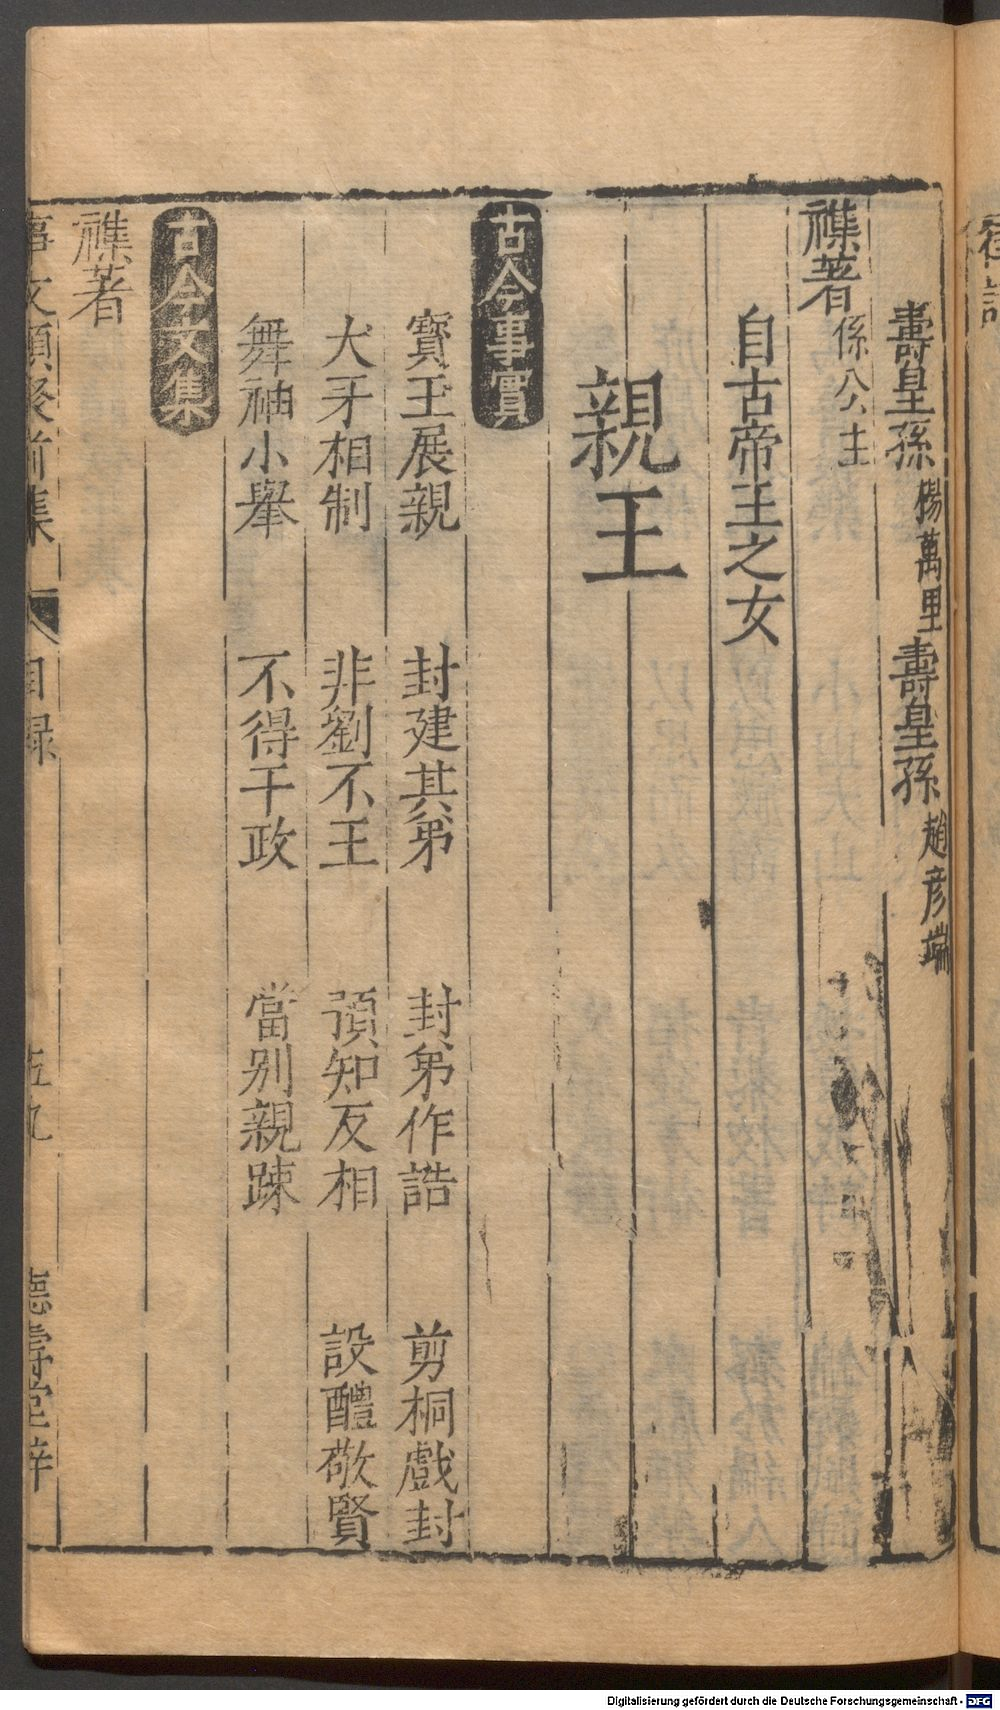 壽皇孫 楊萬里 壽皇孫 趙彥端
襍著 係公主
自古帝王之女
親王
古今事實
寳玉展親 封建其弟 封弟作誥 剪桐戲封
犬牙相制 非劉不王 預知反相 設醴敬賢
舞袖小舉 不得干政 當別親踈
古今文集
襍著
事文類聚前集 目録 五九 德壽堂梓
Digitalisierung gefördert durch die Deutsche Forschungsgemeinschaft - DFG